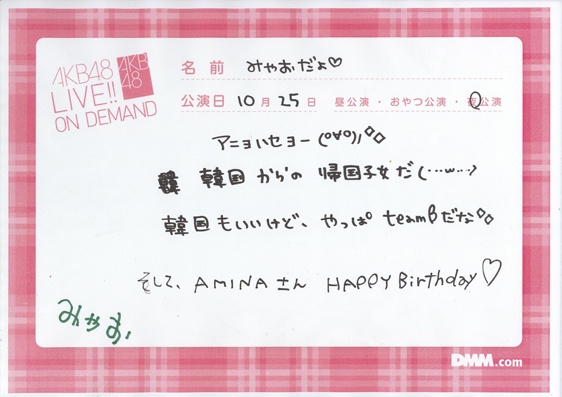 AKB48
LIVE!!
ON DEMAND
AKB
48
名前 みゃおだょ♡
公演日 10月25日 昼公演・おやつ公演・夜公演
アニョハセヨー(°∀°)ノ◇◇
韓国からの帰国子女だ(…w…)
韓国もいいけど、やっぱteamBだな◇◇
そして、AMINAさん HAPPY Birthday♡
みゃお
DMM.com